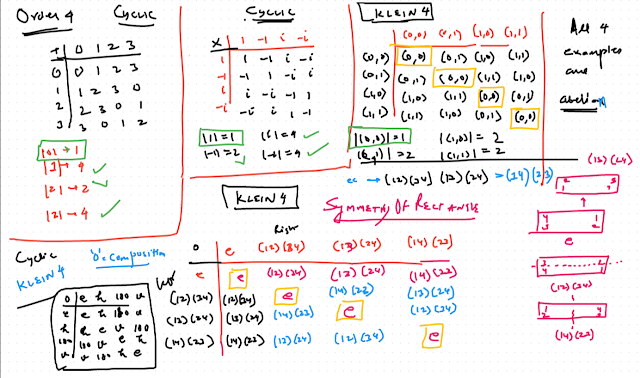 Order 4 Cyclic
+ 0 1 2 3
0 0 1 2 3
1 1 2 3 0
2 2 3 0 1
3 3 0 1 2
|0| → 1
|1| → 4
|2| → 2
|2| → 4
Cyclic
X 1 -1 i -i
1 1 -1 i -i
-1 -1 1 -i i
i i -i -1 1
-i -i i 1 -1
|1| = 1 |i| = 4
|-1| = 2 |-i| = 4
KLEIN 4
(0,0) (0,1) (1,0) (1,1)
(0,0) (0,0) (0,1) (1,0) (1,1)
(0,1) (0,1) (0,0) (1,1) (1,0)
(1,0) (1,0) (1,1) (0,0) (0,1)
(1,1) (1,1) (1,0) (0,1) (0,0)
|(0,0)| = 1 |(1,0)| = 2
|(0,1)| = 2 |(1,1)| = 2
All 4
examples
are
abelian
ex → (12)(34) (13)(24) → (14)(23)
KLEIN 4
SYMMETRY OF RECTANGLE
Right
o e (12)(34) (13)(24) (14)(23)
e e (12)(34) (13)(24) (14)(23)
(12)(34) (12)(34) e (14)(23) (13)(24)
(13)(24) (13)(24) (14)(23) e (12)(34)
(14)(23) (14)(23) (13)(24) (12)(34) e
Cyclic
KLEIN 4
'o' = composition
o e h 180 v
e e h 180 v
h h e v 180
180 180 v e h
v v 180 h e
(13)(24)
e
(12)(34)
(14)(23)